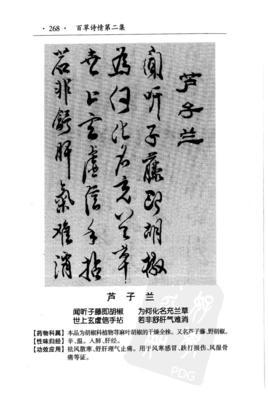 · 268 · 百草诗情第二集
芦子兰
闻听子藤即胡椒
为何化名充兰草
世上玄虚信手拈
若非舒肝气难消
芦子兰
闻听子藤即胡椒 为何化名充兰草
世上玄虚信手拈 若非舒肝气难消
【药物科属】 本品为胡椒科植物苎麻叶胡椒的干燥全株。又名芦子藤、野胡椒。
【性味归经】 辛、温。入肺、肝经。
【功效应用】 祛风散寒、舒肝理气止痛。用于风寒感冒、跌打损伤、风湿骨
痛等证。
PDG